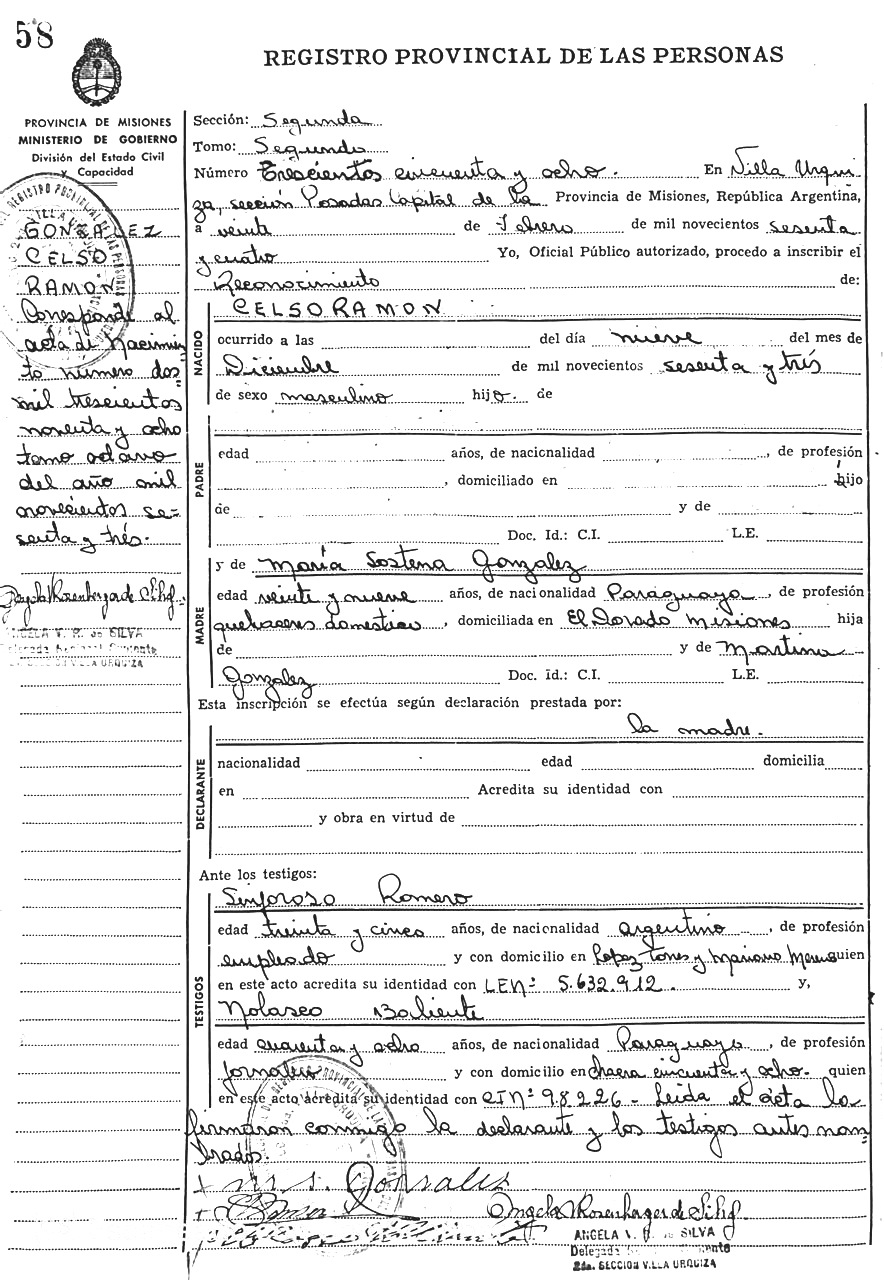 58
REGISTRO PROVINCIAL DE LAS PERSONAS
PROVINCIA DE MISIONES
MINISTERIO DE GOBIERNO
División del Estado Civil
y Capacidad
GONZALEZ
CELSO
RAMON
Corresponde al
acta de nacimien
to número dos
mil trescientos
noventa y ocho
tomo octavo
del año mil
novecientos se=
senta y trés.
ANGELA V. R. de SILVA
Delegada Seccional
SECCION VILLA URQUIZA
Sección: Segunda
Tomo: Segundo
Número Trescientos cincuenta y ocho. En Villa Urqui
za, sección Posadas Capital de la Provincia de Misiones, República Argentina,
a veinte de Febrero de mil novecientos sesenta
y cuatro Yo, Oficial Público autorizado, procedo a inscribir el
Reconocimiento de:
NACIDO
CELSO RAMON
ocurrido a las del día nueve del mes de
Diciembre de mil novecientos sesenta y trés
de sexo masculino hijo. de
PADRE
edad años, de nacionalidad , de profesión
, domiciliado en hijo
de y de
Doc. Id.: C.I. L.E.
MADRE
y de María Sostena Gonzalez
edad veinte y nueve años, de nacionalidad Paraguaya, de profesión
quehaceres domesticos, domiciliada en El Dorado Misiones hija
de y de Martina
Gonzalez Doc. Id.: C.I. L.E.
Esta inscripción se efectúa según declaración prestada por:
la madre.
DECLARANTE
nacionalidad edad domicilia
en Acredita su identidad con
y obra en virtud de
Ante los testigos:
TESTIGOS
Sinforoso Romero
edad treinta y cinco años, de nacionalidad argentino, de profesión
empleado y con domicilio en Lopez Torres y Mariano Moreno quien
en este acto acredita su identidad con LEN° 5.632.912. y,
Nolasco Baliente
edad cuarenta y ocho años, de nacionalidad Paraguayo, de profesión
jornalero y con domicilio en chacra cincuenta y ocho. quien
en este acto acredita su identidad con CIN° 98226 - Leida el acta la
firmaron conmigo la declarante y los testigos antes nom=
brados.
+ M. S. Gonsales
ANGELA V. R. de SILVA
Delegada
2da. SECCION VILLA URQUIZA